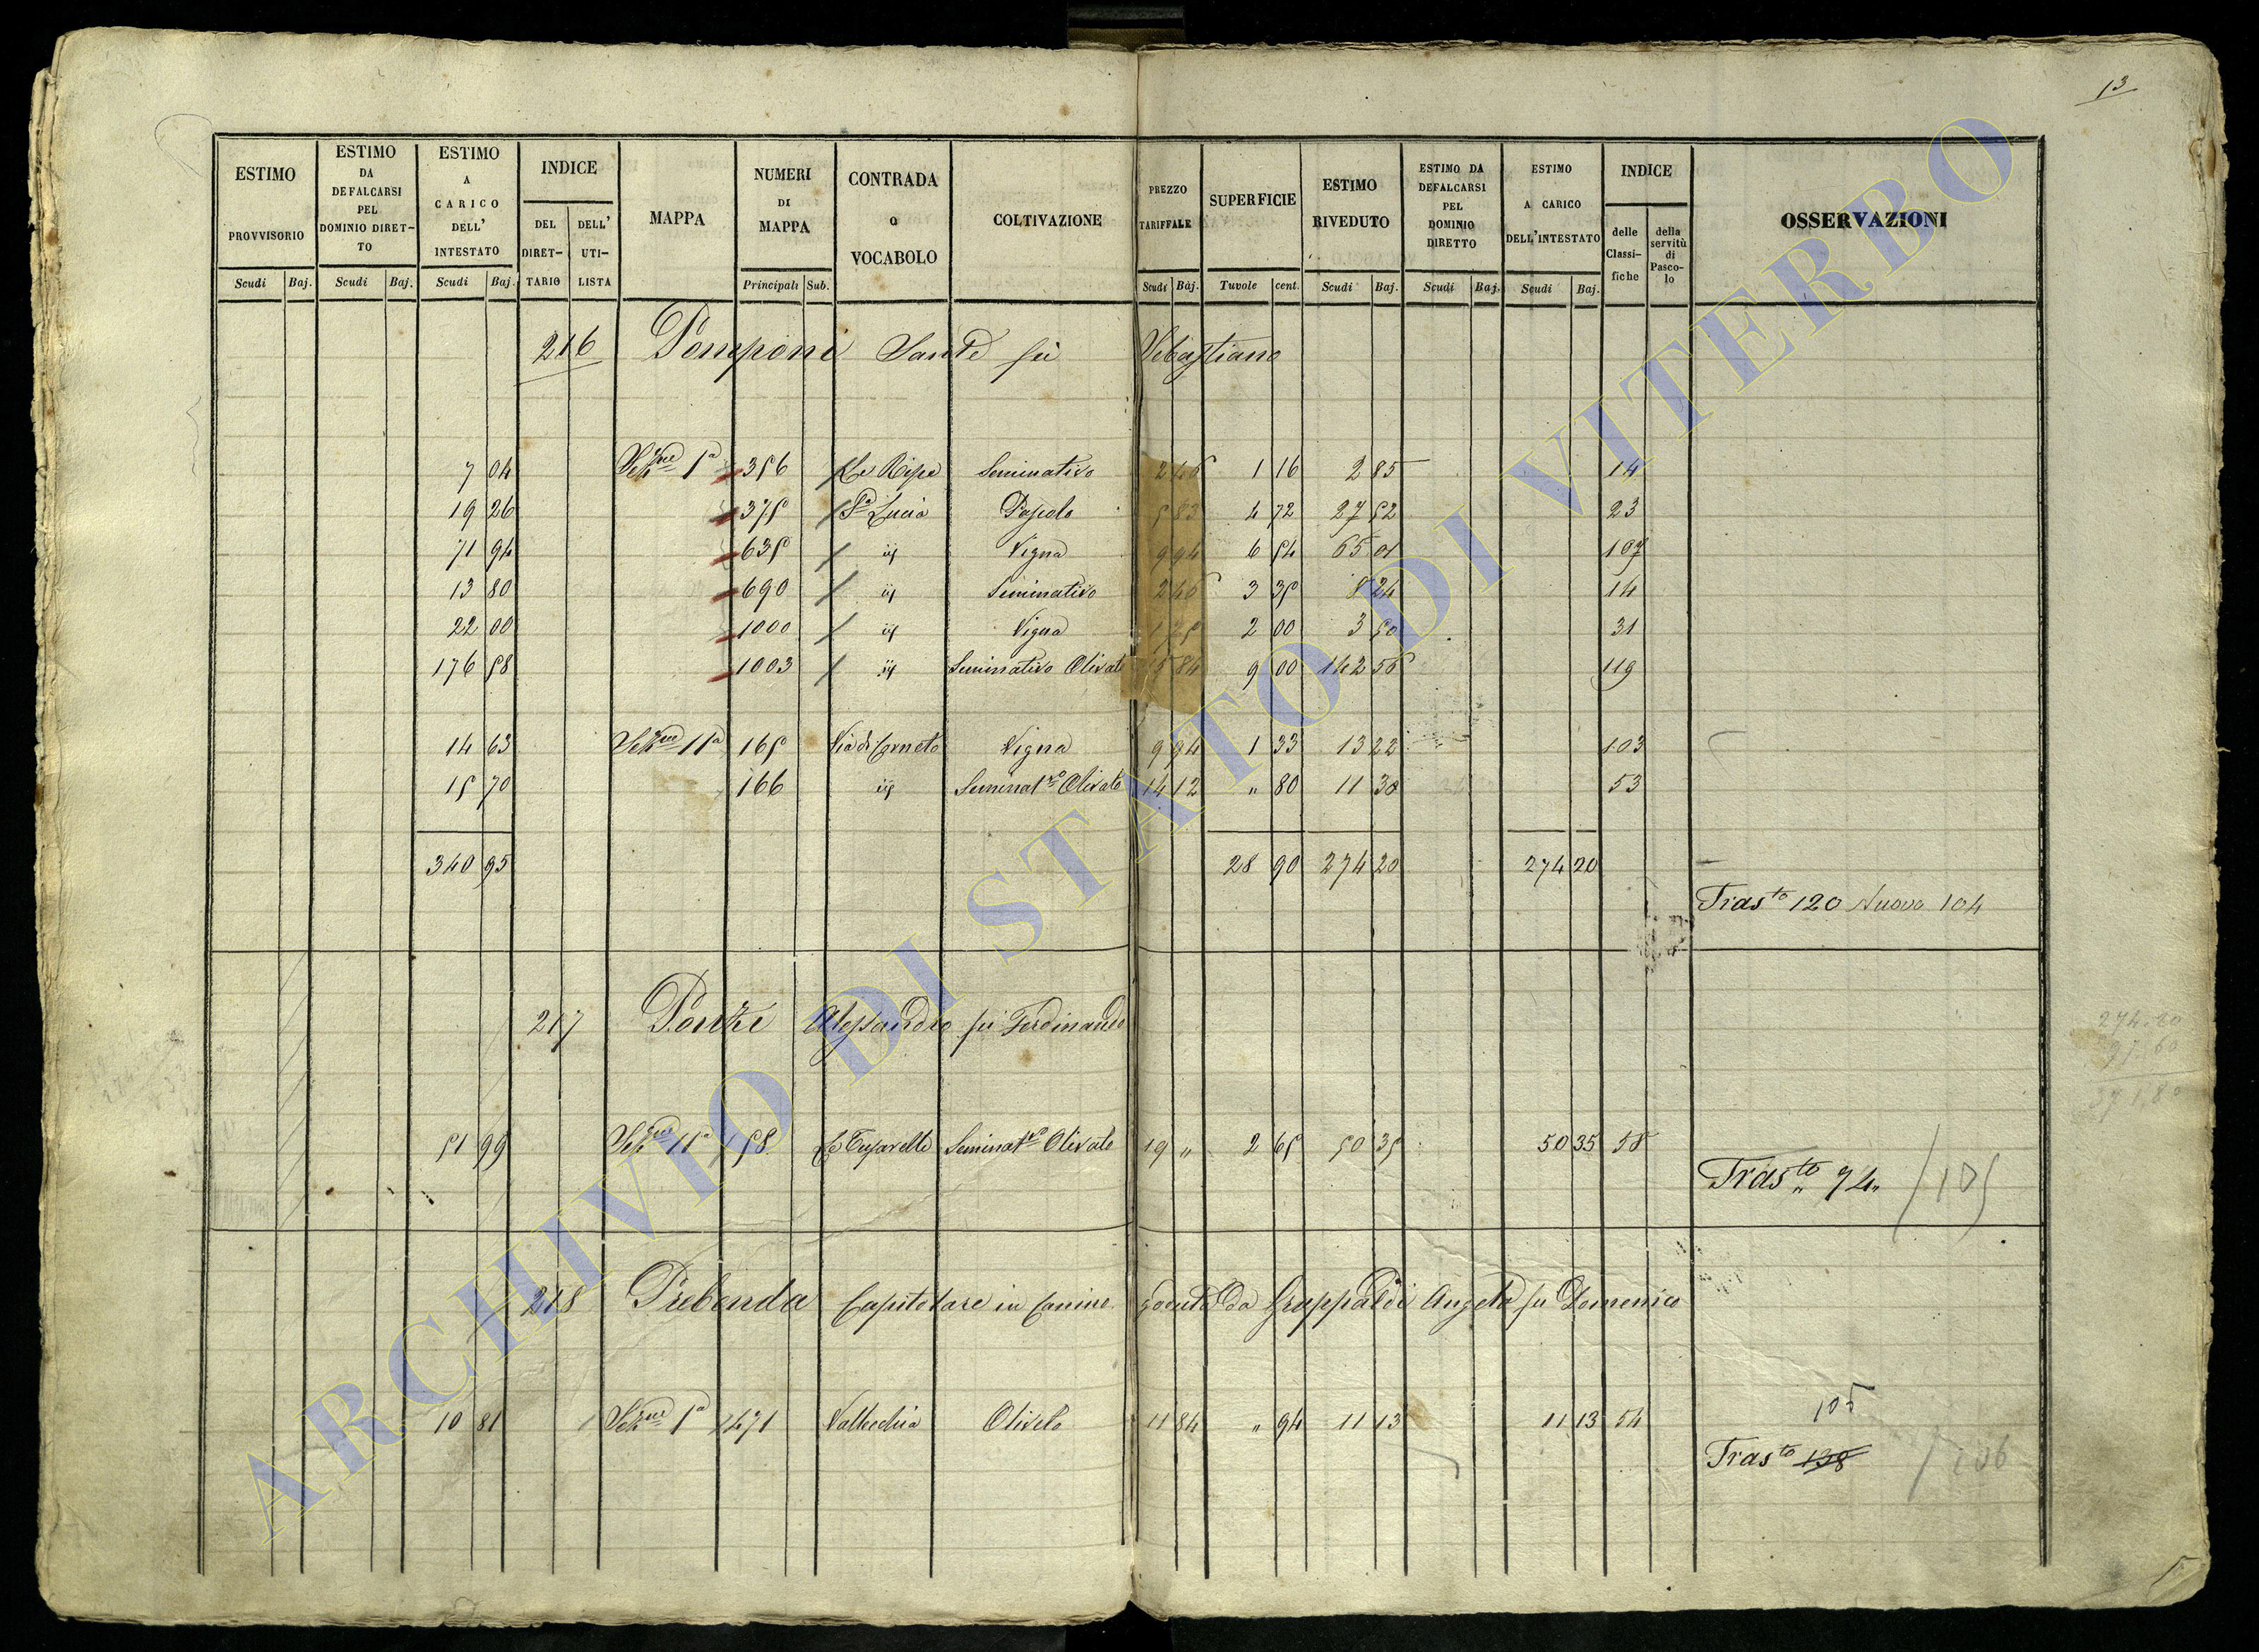 13
ESTIMO PROVVISORIO Scudi Baj.
ESTIMO DA DEFALCARSI PEL DOMINIO DIRETTO Scudi Baj.
ESTIMO A CARICO DELL' INTESTATO Scudi Baj.
INDICE DEL DIRETTARIO DELL' UTILISTA
MAPPA
NUMERI DI MAPPA Principali Sub.
CONTRADA o VOCABOLO
COLTIVAZIONE
PREZZO TARIFFALE Scudi Baj.
SUPERFICIE Tavole cent.
ESTIMO RIVEDUTO Scudi Baj.
ESTIMO DA DEFALCARSI PEL DOMINIO DIRETTO Scudi Baj.
ESTIMO A CARICO DELL'INTESTATO Scudi Baj.
INDICE delle Classifiche della servitù di Pascolo
OSSERVAZIONI
216 Pomponi Sante fù Sebastiano
7 04 Sezne 1a 356 Le Ripe Seminativo 2 46 1 16 2 85 14
19 26 375 Sa Lucia Pascolo 5 83 4 72 27 52 23
71 94 635 id Vigna 9 94 6 54 65 01 107
13 80 690 id Seminativo 2 46 3 35 8 24 14
22 00 1000 id Vigna 1 75 2 00 3 50 31
176 58 1003 id Seminativo Olivato 15 84 9 00 142 56 119
14 63 Sezne 11a 165 Via di Corneto Vigna 9 94 1 33 13 22 103
15 70 166 id Seminatvo Olivato 14 12 " 80 11 30 53
340 95 28 90 274 20 274 20
Trasto 120 Nuovo 104
217 Ponzi Alessandro fù Ferdinando
274.20
97.60
371,80
51 99 Sezne 11a 158 Seminatvo Olivato 19 " 2 65 50 35 50 35 58
Trasto 74 105
218 Prebenda Capitolare in Canino goduta da Grappaldi Angelo fu Domenico
10 81 Sezne 1a 1471 Vallecchia Oliveto 11 84 " 94 11 13 11 13 54
105
Trasto 138 106
ARCHIVIO DI STATO DI VITERBO